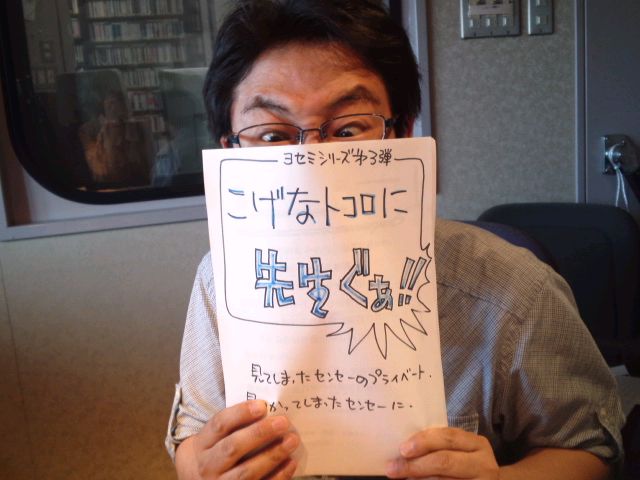 ヨセミシリーズ第3弾
こげなトコロに
先生ぐぁ!!
見てしまったセンセーのプライベート.
見つかってしまったセンセーに.